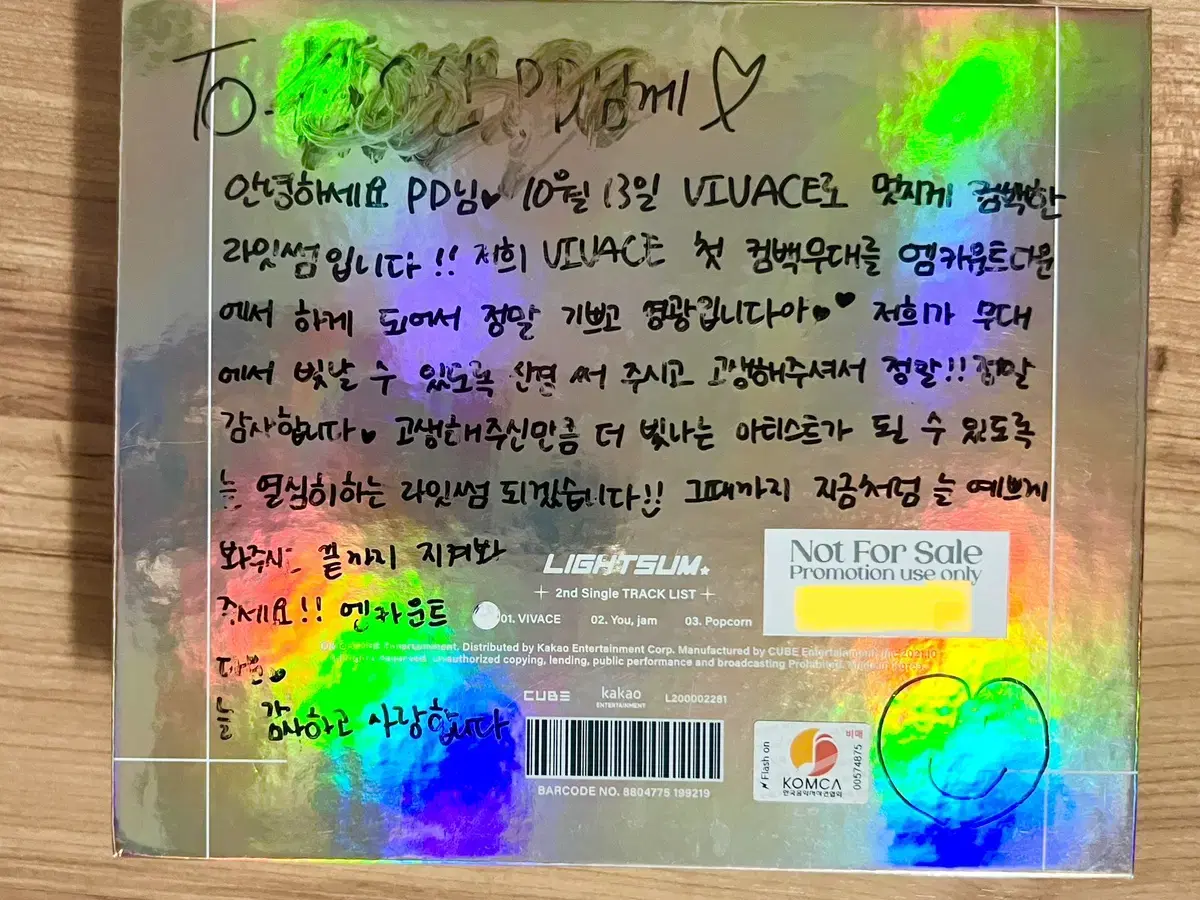 To. PD님께
안녕하세요 PD님 10월 13일 VIVACE로 멋지게 컴백한
라잇썸입니다!! 저희 VIVACE 첫 컴백무대를 엠카운트다운
에서 하게 되어서 정말 기쁘고 영광입니다아 저희가 무대
에서 빛날 수 있도록 신경 써 주시고 고생해주셔서 정말!! 정말
감사합니다 고생해주신만큼 더 빛나는 아티스트가 될 수 있도록
늘 열심히하는 라잇썸 되겠습니다!! 그때까지 지금처럼 늘 예쁘게
봐주시고 끝까지 지켜봐
주세요!! 엠카운트
다운
늘 감사하고 사랑합니다
Not For Sale
Promotion use only
LIGHTSUM
2nd Single TRACK LIST
01. VIVACE 02. You, jam 03. Popcorn
Distributed by Kakao Entertainment Corp. Manufactured by CUBE Entertainment
unauthorized copying, lending, public performance and broadcasting Prohibited.
CUBE kakao ENTERTAINMENT L200002281
BARCODE NO. 8804775 199219
Flash on
KOMCA
한국음악저작권협회
비매
00574875